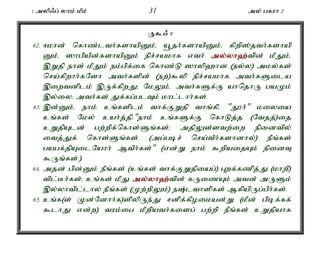 1 அலிஃப் லாம் மீம் 31 அல் பகரா 2
ருகூஃ 8
62. ஈமான் கொண்டவர்களாயினும், யூதர்களாயினும், கிறிஸ்தவர்களாயி
னும், ஸாபியீன்களாயினும் நிச்சயமாக எவர் அல்லாஹ்வின் மீதும்,
இறுதி நாள் மீதும் நம்பிக்கை கொண்டு ஸாலிஹான (நல்ல) அமல்கள்
செய்கிறார்களோ அவர்களின் (நற்)கூலி நிச்சயமாக அவர்களுடைய
இறைவனிடம் இருக்கிறது; மேலும், அவர்களுக்கு யாதொரு பயமும்
இல்லை; அவர்கள் துக்கப்படவும் மாட்டார்கள்.
63. இன்னும், நாம் உங்களிடம் வாக்குறுதி வாங்கி, "தூர்" மலையை
உங்கள் மேல் உயர்த்தி,"நாம் உங்களுக்கு கொடுத்த (வேதத்)தை
உறுதியுடன் பற்றிக்கொள்ளுங்கள்; அதிலுள்ளவற்றை நினைவில்
வைத்துக் கொள்ளுங்கள். (அப்படிச் செய்வீர்களானால்) நீங்கள்
பயபக்தியுடையோர் ஆவீர்கள்" (என்று நாம் கூறியதையும் நினைவு
கூருங்கள்.)
64. அதன் பின்னும் நீங்கள் (உங்கள் வாக்குறுதியைப்) புறக்கணித்து (மாறி)
விட்டீர்கள்; உங்கள் மீது அல்லாஹ்வின் கருணையும் அவன் அருளும்
இல்லாவிட்டால் நீங்கள் (முற்றிலும்) நஷ்டவாளிகள் ஆகியிருப்பீர்கள்.
65. உங்கள்(ள் முன்னோர்க)ளிலிருந்து சனிக்கிழமையன்று (மீன் பிடிக்கக்
கூடாது என்ற) வரம்பை மீறியவர்களைப் பற்றி நீங்கள் உறுதியாக